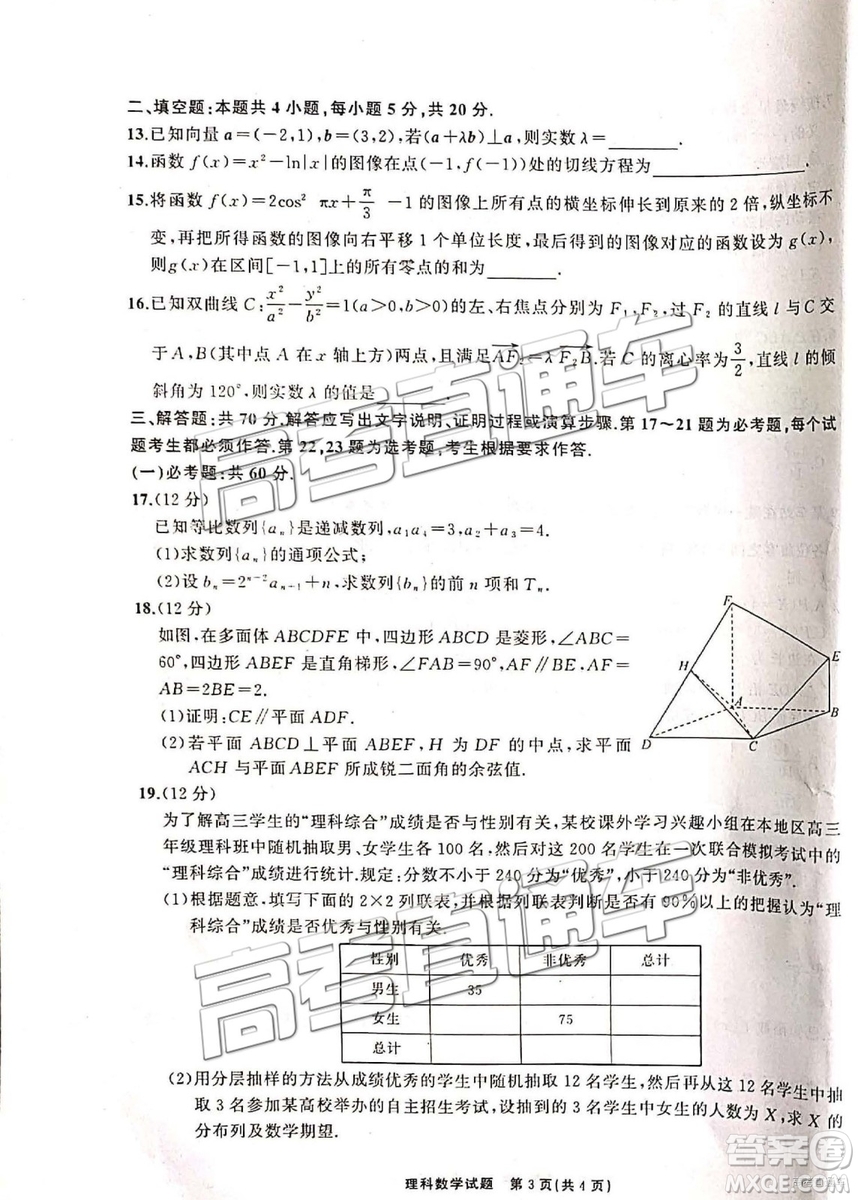 二、填空题:本题共 4 小题,每小题 5 分,共 20 分.
13.已知向量 a=(-2,1),b=(3,2),若(a+λb)⊥a,则实数 λ=________.
14.函数 f(x)=x²-ln|x|的图像在点(-1,f(-1))处的切线方程为________.
15.将函数 f(x)=2cos² πx+π/3 -1 的图像上所有点的横坐标伸长到原来的 2 倍,纵坐标不
变,再把所得函数的图像向右平移 1 个单位长度,最后得到的图像对应的函数设为 g(x),
则g(x)在区间[-1,1]上的所有零点的和为________.
16.已知双曲线 C:x²/a²-y²/b²=1(a>0,b>0)的左、右焦点分别为 F₁,F₂,过 F₂ 的直线 l 与 C 交
于 A,B(其中点 A 在 x 轴上方)两点,且满足AF₂=λF₂B.若 C 的离心率为3/2,直线 l 的倾
斜角为 120°,则实数 λ 的值是________.
三、解答题:共 70 分.解答应写出文字说明、证明过程或演算步骤.第 17～21 题为必考题,每个试
题考生都必须作答.第 22,23 题为选考题,考生根据要求作答.
(一)必考题:共 60 分.
17.(12 分)
已知等比数列{aₙ}是递减数列,a₁a₄=3,a₂+a₃=4.
(1)求数列{aₙ}的通项公式;
(2)设 bₙ=2ⁿ⁻²aₙ₋₁+n,求数列{bₙ}的前 n 项和 Tₙ.
18.(12 分)
如图,在多面体 ABCDFE 中,四边形 ABCD 是菱形,∠ABC=
60°,四边形 ABEF 是直角梯形,∠FAB=90°,AF∥BE,AF=
AB=2BE=2.
(1)证明:CE∥平面 ADF.
(2)若平面 ABCD⊥平面 ABEF,H 为 DF 的中点,求平面
ACH 与平面 ABEF 所成锐二面角的余弦值.
F
E
H
A
B
D
C
19.(12 分)
为了解高三学生的“理科综合”成绩是否与性别有关,某校课外学习兴趣小组在本地区高三
年级理科班中随机抽取男、女学生各 100 名,然后对这 200 名学生在一次联合模拟考试中的
“理科综合”成绩进行统计.规定:分数不小于 240 分为“优秀”,小于 240 分为“非优秀”.
(1)根据题意,填写下面的 2×2 列联表,并根据列联表判断是否有 90%以上的把握认为“理
科综合”成绩是否优秀与性别有关.
性别 优秀 非优秀 总计
男生 35
女生 75
总计
(2)用分层抽样的方法从成绩优秀的学生中随机抽取 12 名学生,然后再从这 12 名学生中抽
取 3 名参加某高校举办的自主招生考试,设抽到的 3 名学生中女生的人数为 X,求 X 的
分布列及数学期望.
理科数学试题 第 3 页(共 4 页)
高考直通车
高考直通车
答案圈
MXQE.COM